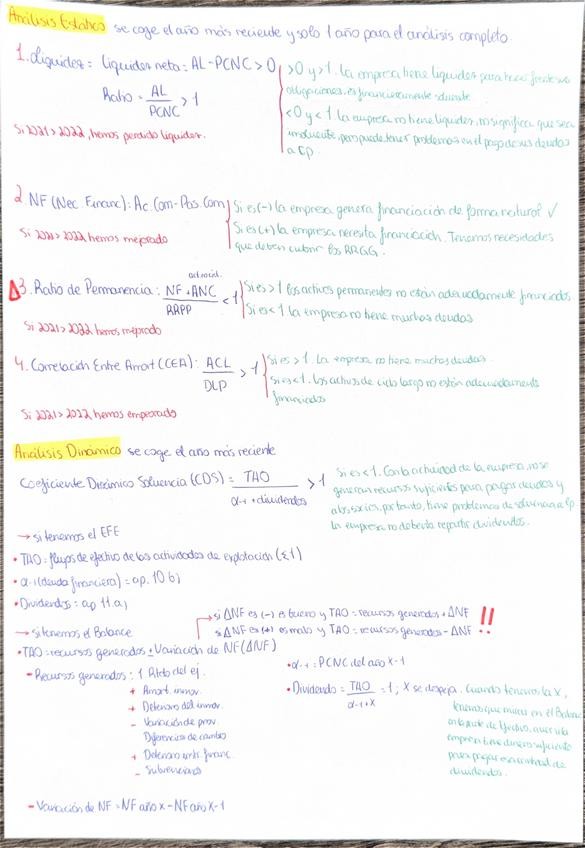 Análisis Estático se coge el año más reciente y solo 1 año para el análisis completo.
1. Liquidez = Liquidez neta: AL - PCNC > 0
Ratio = AL / PCNC > 1
>0 y >1. La empresa tiene liquidez para hacer frente a sus
obligaciones, es financieramente solvente
<0 y <1 la empresa no tiene liquidez, no significa que sea
insolvente, pero puede tener problemas en el pago de sus deudas
a cp.
Si 2021 > 2022, hemos perdido liquidez.
2 NF (Nec. Financ): Ac. Com - Pas. Com
Si es (-) la empresa genera financiación de forma natural ✓
Si es (+) la empresa necesita financiación. Tenemos necesidades
que deben cubrir los RRGG.
Si 2021 > 2022 hemos mejorado
3. Ratio de Permanencia: NF + ANC / RRPP < 1
Si es > 1 los activos permanentes no están adecuadamente financiados
Si es < 1 la empresa no tiene muchas deudas
Si 2021 > 2022 hemos mejorado
4. Correlación Entre Amort (CEA): ACL / DLP > 1
Si es > 1. La empresa no tiene muchas deudas.
Si es < 1. Los activos de ciclo largo no están adecuadamente
financiados
Si 2021 > 2022, hemos empeorado
Análisis Dinámico se coge el año más reciente
Coeficiente Dinámico Solvencia (CDS) = TAO / α-1 + dividendos > 1
Si es < 1. Con la actividad de la empresa, no se
generan recursos suficientes para pagar deudas y
a los socios, por tanto, tiene problemas de solvencia a cp
la empresa no debería repartir dividendos.
→ si tenemos el EFE
• TAO = flujos de efectivo de las actividades de explotación (Σ1)
• α-1 (deuda financiera) = ap. 10 b)
• Dividendos: ap 11.a)
→ si tenemos el Balance
si ΔNF es (-) es bueno y TAO = recursos generados + ΔNF
si ΔNF es (+) es malo y TAO = recursos generados - ΔNF !!
• TAO = recursos generados ± Variación de NF (ΔNF)
- Recursos generados: 1 Rtdo del ej.
+ Amort. inmov.
+ Deterioro del inmov.
- Variación de prov.
Diferencias de cambio
+ Deterioro instr. financ.
- Subvenciones
• α-1 = PCNC del año x-1
• Dividendo = TAO / α-1 + X = 1; X se despeja. Cuando tenemos la X,
tenemos que mirar en el Balance
en la parte de Efectivo, a ver si la
empresa tiene dinero suficiente
para pagar esa cantidad de
dividendos.
- Variación de NF = NF año x - NF año x-1